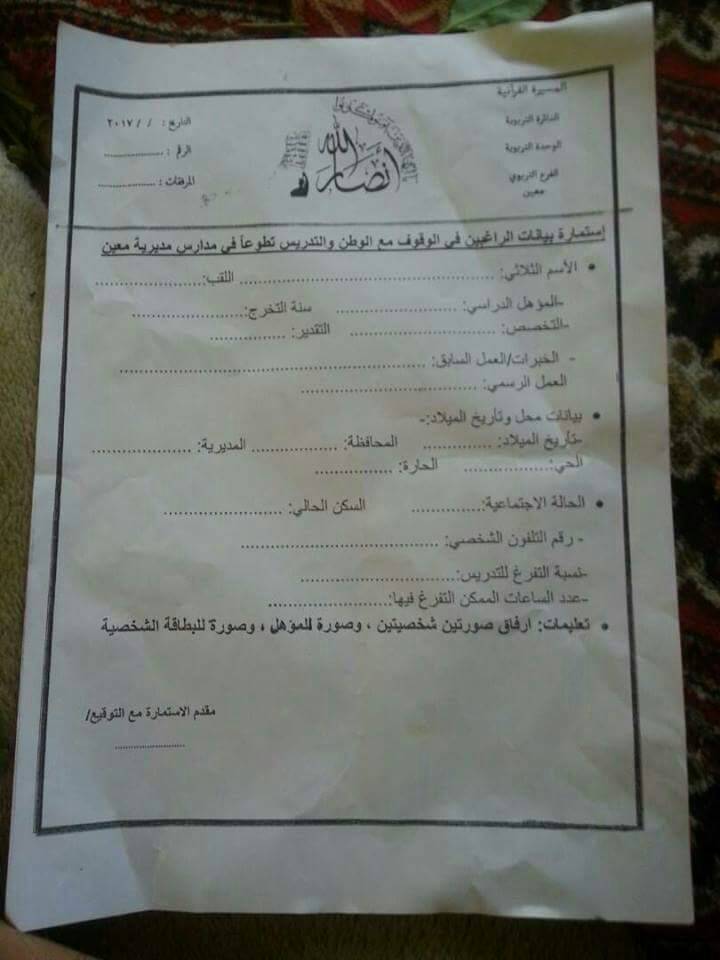 المسيرة القرآنية
الدائرة التربوية
الوحدة التربوية
الفرع التربوي
معين
أنصار الله
التاريخ : / / ٢٠١٧
الرقم : ..................
المرفقات : ..................
إستمارة بيانات الراغبين في الوقوف مع الوطن والتدريس تطوعاً في مدارس مديرية معين
• الأسم الثلاثي: ................................................ اللقب:....................
-المؤهل الدراسي: ........................ سنة التخرج:......................
-التخصص: ............................. التقدير: ...............
- الخبرات/العمل السابق: .............................................................
العمل الرسمي: ...................................
• بيانات محل وتأريخ الميلاد:-
-تأريخ الميلاد: .............. المحافظة: ................. المديرية: ...................
الحي:................. الحارة: ...............
• الحالة الاجتماعية:.............. السكن الحالي: .......................
- رقم التلفون الشخصي: .......................................
-نسبة التفرغ للتدريس:...............................
-عدد الساعات الممكن التفرغ فيها:........................
• تعليمات: ارفاق صورتين شخصيتين ، وصورة للمؤهل ، وصورة للبطاقة الشخصية
مقدم الاستمارة مع التوقيع/
......................